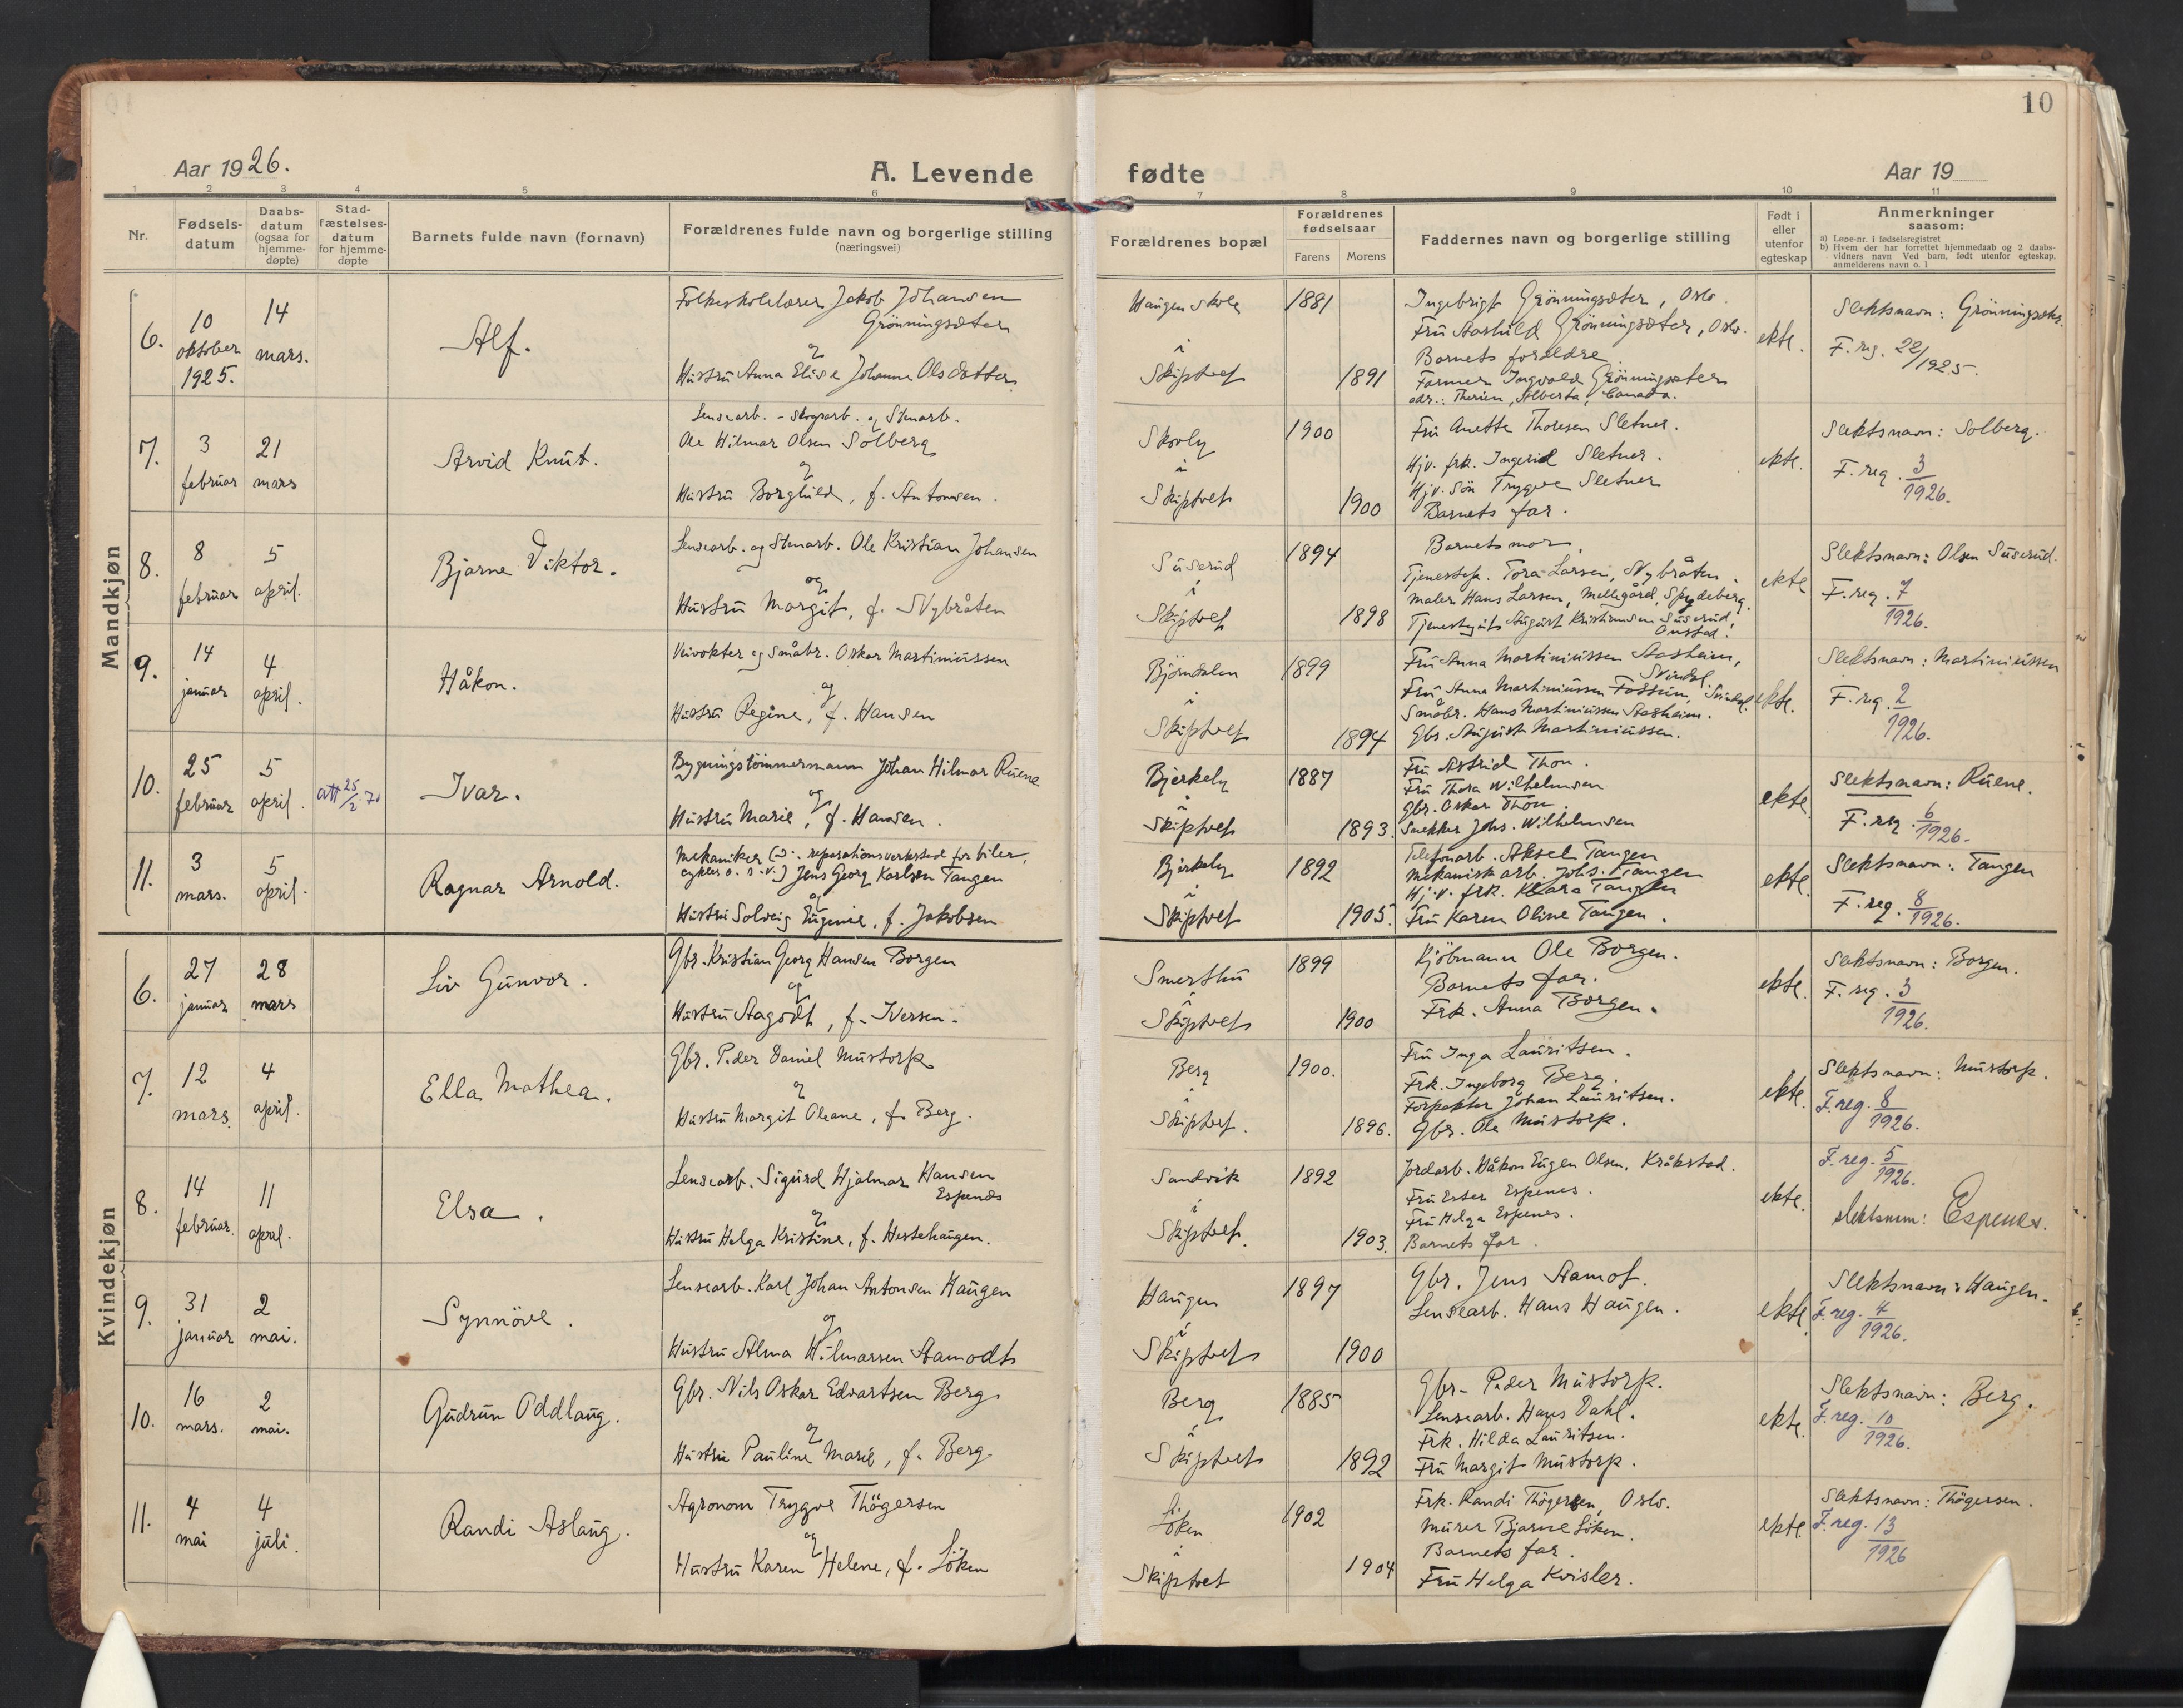 10
Aar 1926.
A. Levende
fødte
Aar 19
1 2 3 4 5 6 7 8 9 10 11
Nr.
Fødsels-datum
Daabs-datum (ogsaa for hjemme-døpte)
Stad-fæstelses-datum for hjemme-døpte
Barnets fulde navn (fornavn)
Forældrenes fulde navn og borgerlige stilling (næringsvei)
Forældrenes bopæl
Forældrenes fødselsaar
Farens
Morens
Faddernes navn og borgerlige stilling
Født i eller utenfor egteskap
Anmerkninger saasom:
a) Løpe-nr. i fødselsregistret
b) Hvem der har forrettet hjemmedaab og 2 daabs-vidners navn Ved barn, født utenfor egteskap, anmelderens navn o. l
Mandkjøn
6.
10 oktober 1925.
14 mars.
Alf.
Folkeskolelærer Jakob Johansen
Grönningsæter
og
Hustru Anna Elise Johanne Olsdatter
Haugen skole
i
Skiptvet
1881
1891
Ingebrigt Grönningsæter, Oslo.
Fru Aashild Grönningsæter, Oslo.
Barnets forældre
Farmer Ingvald Grönningsæter
adr.: Therien, Alberta, Canada.
ekte.
Slektsnavn: Grönningsæter.
F. reg. 22/1925.
7.
3 februar
21 mars
Arvid Knut.
Lensearb. - skogsarb. og Stenarb.
Ole Hilmar Olsen Solberg
og
Hustru Borghild, f. Antonsen.
Skovly
i
Skiptvet
1900
1900
Fru Anette Thoresen Sletner.
Hjv. frk. Ingerid Sletner.
Hjv. sön Trygve Sletner
Barnets far.
ekte.
Slektsnavn: Solberg.
F. reg. 3/1926.
8.
8 februar
5 april.
Bjarne Viktor.
Lensearb. og Stenarb. Ole Kristian Johansen
og
Hustru Margit, f. Nybråten
Süserud
i
Skiptvet
1894
1898
Barnets mor.
Tjenestep. Tora Larsen, Nybråten.
Maler Hans Larsen, Mellegård, Spydeberg.
Tjenestegut August Kristiansen Süserud,
Onstad.
ekte
Slektsnavn: Olsen Süserud.
F. reg. 7/1926.
9.
14 januar
4 april.
Håkon.
Veivokter og småbr. Oskar Martiniussen
og
Hustru Regine, f. Hansen
Björndalen
i
Skiptvet
1899
1894
Fru Anna Martiniussen Aasheim,
Svindal.
Fru Anna Martiniussen Fossum, Svindal.
Småbr. Hans Martiniussen Aasheim.
Gbr. August Martiniussen.
ekte.
Slektsnavn: Martiniussen
F. reg. 2/1926.
10.
25 februar
5 april.
att 25/2.70
Ivar.
Bygningstömmermann Johan Hilmar Ruene
og
Hustru Marie, f. Hansen.
Bjerkely
i
Skiptvet
1887
1893.
Fru Astrid Thon.
Fru Thora Wilhelmsen
Gbr. Oskar Thon.
Snekker Johs. Wilhelmsen
ekte.
Slektsnavn: Ruene.
F. reg. 6/1926.
11.
3 mars.
5 april.
Ragnar Arnold.
Mekaniker (reparationsverksted for biler,
cykler o. s. v.) Jens Georg Karlsen Tangen
og
Hustru Solveig Eugenie, f. Jakobsen
Bjerkely
i
Skiptvet
1892
1905.
Telefonarb. Aksel Tangen
Mekanisk arb. Johs. Tangen
Hj.v. frk. Klara Tangen
Fru Karen Oline Tangen.
ekte.
Slektsnavn: Tangen
F. reg. 8/1926.
Kvindekjøn
6.
27 januar
28 mars
Liv Gunvor.
Gbr. Kristian Georg Hansen Borgen
og
Hustru Aagodt, f. Iversen.
Smerthu
i
Skiptvet
1899
1900
Kjöbmann Ole Borgen.
Barnets far.
Frk. Anna Borgen.
ekte.
Slektsnavn: Borgen.
F. reg. 3/1926.
7.
12 mars.
4 april.
Ella Mathea.
Gbr. Peder Daniel Mustorp
og
Hustru Margit Oleane, f. Berg.
Berg
i
Skiptvet.
1900.
1896.
Fru Inga Lauritsen.
Frk. Ingeborg Berg.
Forpakter Johan Lauritsen.
Gbr. Ole Mustorp.
ekte.
Slektsnavn: Mustorp.
F. reg. 8/1926.
8.
14 februar.
11 april.
Elsa.
Lensearb. Sigurd Hjalmar Hansen
Espenes
og
Hustru Helga Kristine, f. Hestehaugen.
Sandvik
i
Skiptvet.
1892
1903.
Jordarb. Håkon Eugen Olsen, Kråkstad.
Fru Ester Espenes.
Fru Helga Espenes.
Barnets far.
ekte.
F. reg. 5/1926.
slektsnavn: Espenes.
9.
31 januar
2 mai.
Synnöve.
Lensearb. Karl Johan Antonsen Haugen
og
Hustru Alma Hilmarsen Aamodt
Haugen
i
Skiptvet
1897
1900
Gbr. Jens Aamot.
Lensearb. Hans Haugen.
ekte.
Slektsnavn: Haugen.
F. reg. 4/1926.
10.
16 mars.
2 mai.
Gudrun Oddlaug.
Gbr. Nils Oskar Edvartsen Berg
og
Hustru Pauline Marie, f. Berg
Berg
i
Skiptvet
1885
1892
Gbr. Peder Mustorp.
Lensearb. Hans Dahl.
Frk. Hilda Lauritsen.
Fru Margit Mustorp.
ekte.
Slektsnavn: Berg.
F. reg. 10/1926.
11.
4 mai
4 juli.
Randi Aslaug.
Agronom Trygve Thögersen
og
Hustru Karen Helene, f. Löken
Löken
i
Skiptvet
1902
1904
Frk. Randi Thögersen, Oslo.
Murer Bjarne Löken.
Barnets far.
Fru Helga Kvisler.
ekte.
Slektsnavn: Thögersen.
F. reg. 13/1926